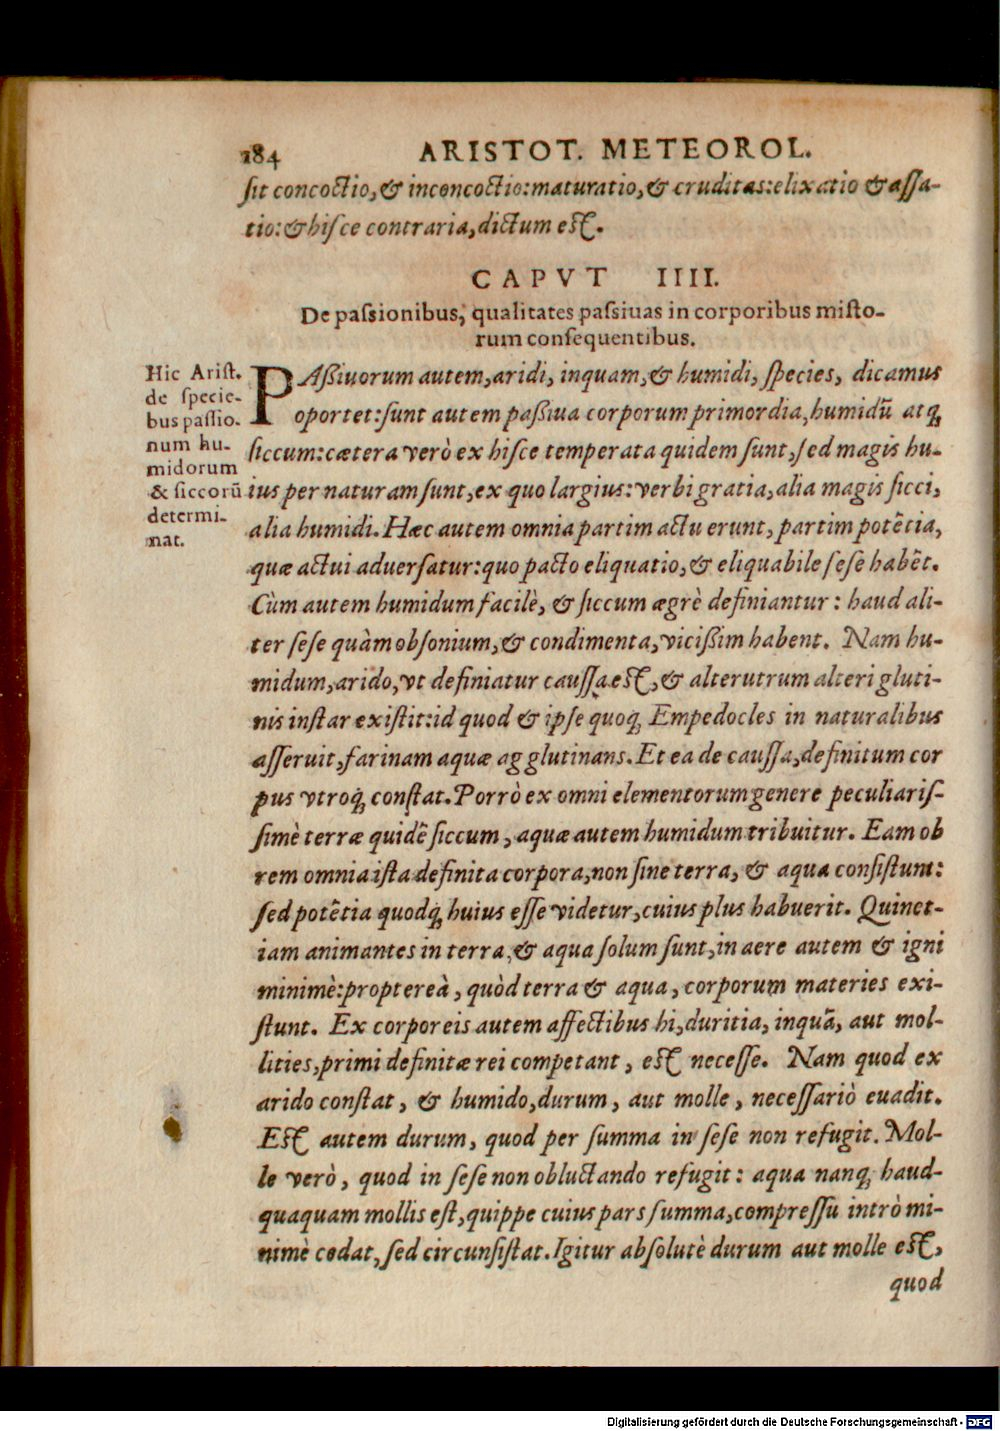 184 ARISTOT. METEOROL.
sit concoctio, & inconcoctio: maturatio, & cruditas: elixatio & assa-
tio: & hisce contraria, dictum est.
CAPVT IIII.
De passionibus, qualitates passiuas in corporibus misto-
rum consequentibus.
Hic Arist.
de specie-
bus passio-
num hu-
midorum
& siccorũ
determi-
nat.
PAssiuorum autem, aridi, inquam, & humidi, species, dicamus
oportet: sunt autem passiua corporum primordia, humidũ atq;
siccum: cætera verò ex hisce temperata quidem sunt, sed magis hu-
ius per naturam sunt, ex quo largius: verbi gratia, alia magis sicci,
alia humidi. Hæc autem omnia partim actu erunt, partim potẽtia,
quæ actui aduersatur: quo pacto eliquatio, & eliquabile sese habẽt.
Cùm autem humidum facilè, & siccum ægrè definiantur: haud ali-
ter sese quàm obsonium, & condimenta, vicissim habent. Nam hu-
midum, arido, vt definiatur caussa est, & alterutrum alteri gluti-
nis instar existit: id quod & ipse quoq; Empedocles in naturalibus
asseruit, farinam aquæ agglutinans. Et ea de caussa, definitum cor
pus vtroq; constat. Porrò ex omni elementorum genere peculiaris-
simè terræ quidẽ siccum, aquæ autem humidum tribuitur. Eam ob
rem omnia ista definita corpora, non sine terra, & aqua consistunt:
sed potẽtia quodq; huius esse videtur, cuius plus habuerit. Quinet-
iam animantes in terra, & aqua solum sunt, in aere autem & igni
minimè: propterea, quòd terra & aqua, corporum materies exi-
stunt. Ex corporeis autem affectibus hi, duritia, inquã, aut mol-
lities, primi definitæ rei competant, est necesse. Nam quod ex
arido constat, & humido, durum, aut molle, necessariò euadit.
Est autem durum, quod per summa in sese non refugit. Mol-
le verò, quod in sese non obluctando refugit: aqua nanq; haud-
quaquam mollis est, quippe cuius pars summa, compressu intrò mi-
nimè cedat, sed circunsistat. Igitur absolutè durum aut molle est,
quod
Digitalisierung gefördert durch die Deutsche Forschungsgemeinschaft - DFG